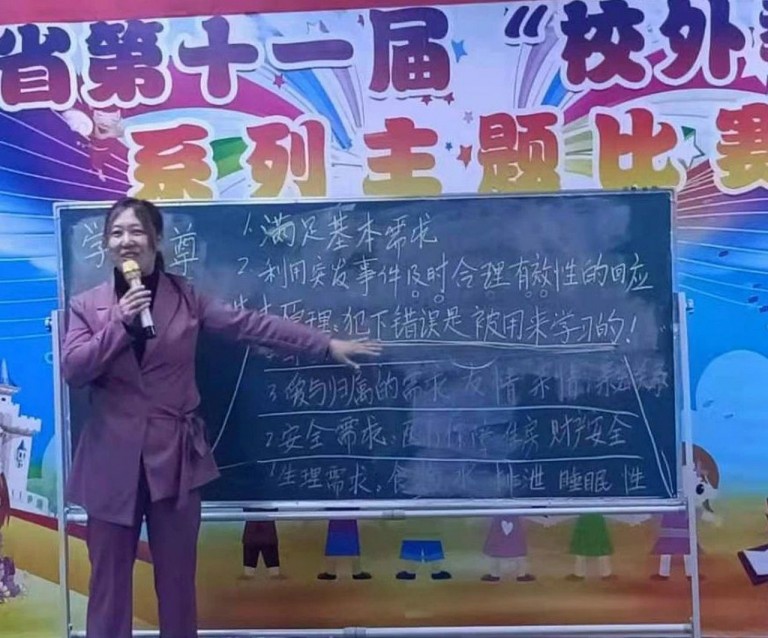 省第十一届“校外
系列主题比赛
学 尊
1.满足基本需求
2.利用突发事件及时合理有效性的回应
原理:犯下错误是被用来学习的!
3.爱与归属的需求 友情 亲情
2.安全需求: 住房 财产安全
1.生理需求: 水 排泄 睡眠 性